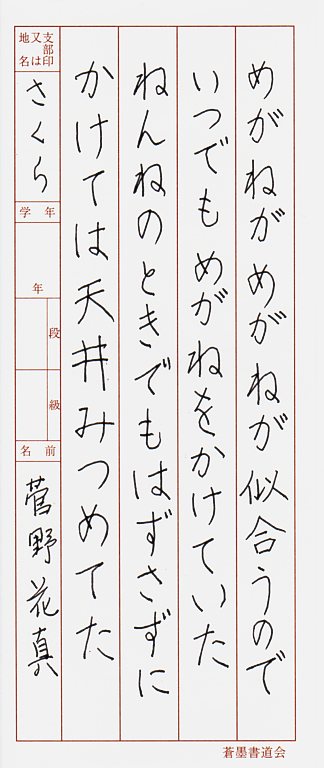 めがねがめがねが似合うので
いつでもめがねをかけていた
ねんねのときでもはずさずに
かけては天井みつめてた
支部印又は地名
さくら
学年
年
段
級
名前
菅野花真
蒼墨書道会